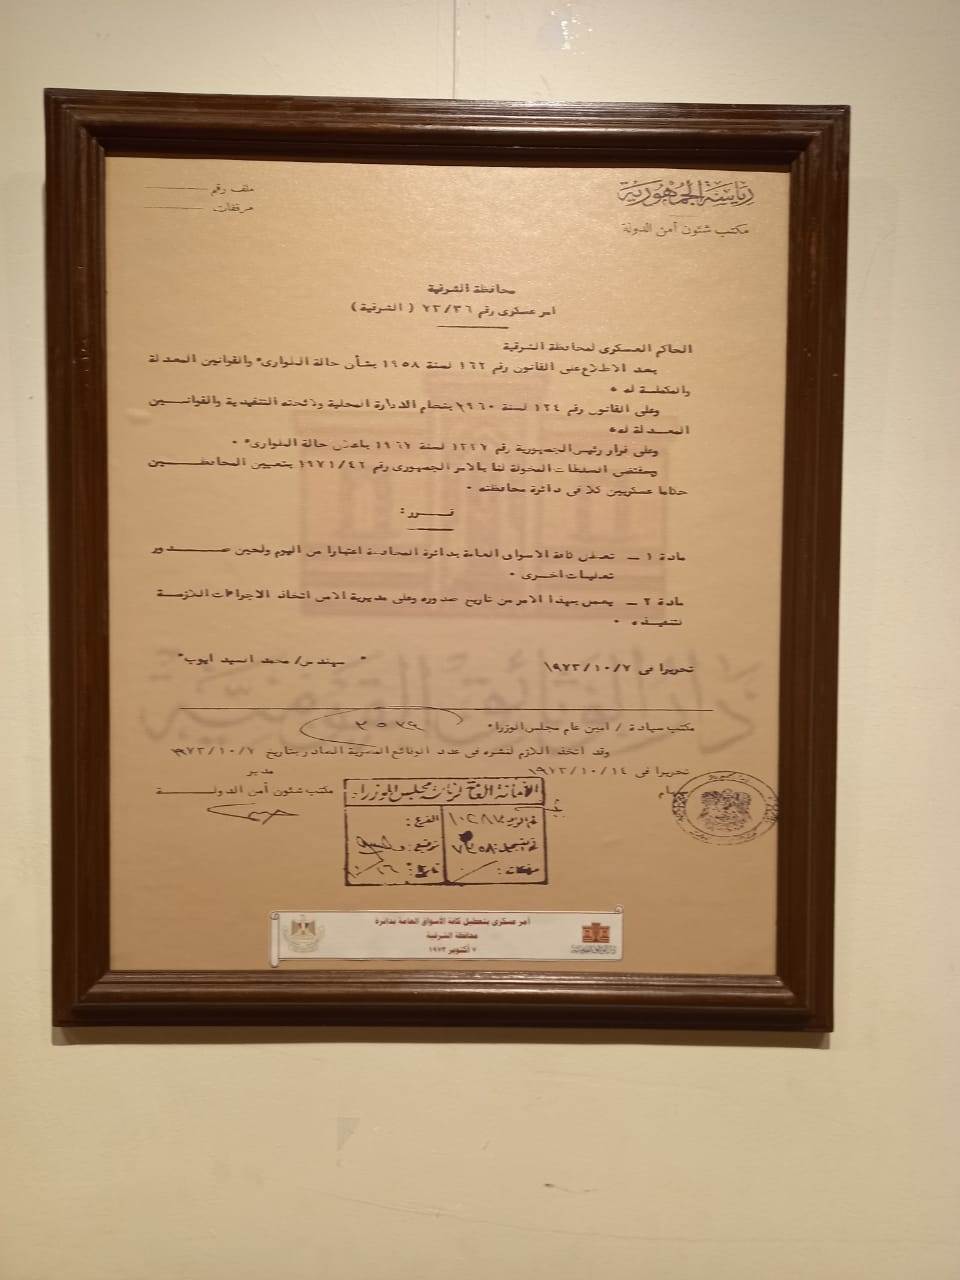 رياسة الجمهورية
مكتب شئون أمن الدولة
ملف رقم
مرفقات
محافظة الشرقية
امر عسكرى رقم ٧٣/٣٦ ( الشرقية )
الحاكم العسكرى لمحافظة الشرقية
بعد الاطلاع على القانون رقم ١٦٢ لسنة ١٩٥٨ بشأن حالة الطوارىء والقوانين المعدلة
والمكملة له ٠
وعلى القانون رقم ١٢٤ لسنة ١٩٦٠ بنظام الادارة المحلية ولائحته التنفيذية والقوانين
المعدلة له٠
وعلى قرار رئيس الجمهورية رقم ١٣٣٧ لسنة ١٩٦٧ باعلان حالة الطوارىء ٠
وبمقتضى السلطات المخولة لنا بالامر الجمهورى رقم ١٩٧١/٤٢ بتعيين المحافظين
حكاما عسكريين كلا فى دائرة محافظته ٠
قرر :
مادة ١ – تعطل كافة الاسواق العامة بدائرة المحافظة اعتبارا من اليوم ولحين صدور
تعليمات اخرى ٠
مادة ٢ – يعمل بهذا الامر من تاريخ صدوره وعلى مديرية الامن اتخاذ الاجراءات اللازمة
لتنفيذه ٠
تحريرا فى ١٩٧٣/١٠/٧
" مهندس/ محمد السيد ايوب "
مكتب سيادة / امين عام مجلس الوزراء
وقد اتخذ اللازم لنشره فى عدد الوقائع المصرية الصادر بتاريخ ١٩٧٣/١٠/٧
تحريرا فى ١٩٧٣/١٠/١٤
مدير
مكتب شئون أمن الدولة
الأمانة العامة لرئاسة مجلس الوزراء
الفرع :
توقيع :
تاريخ :
مرفقات :
دار الوثائق القومية
أمر عسكرى بتعطيل كافة الأسواق العامة بدائرة
محافظة الشرقية
٧ أكتوبر ١٩٧٣